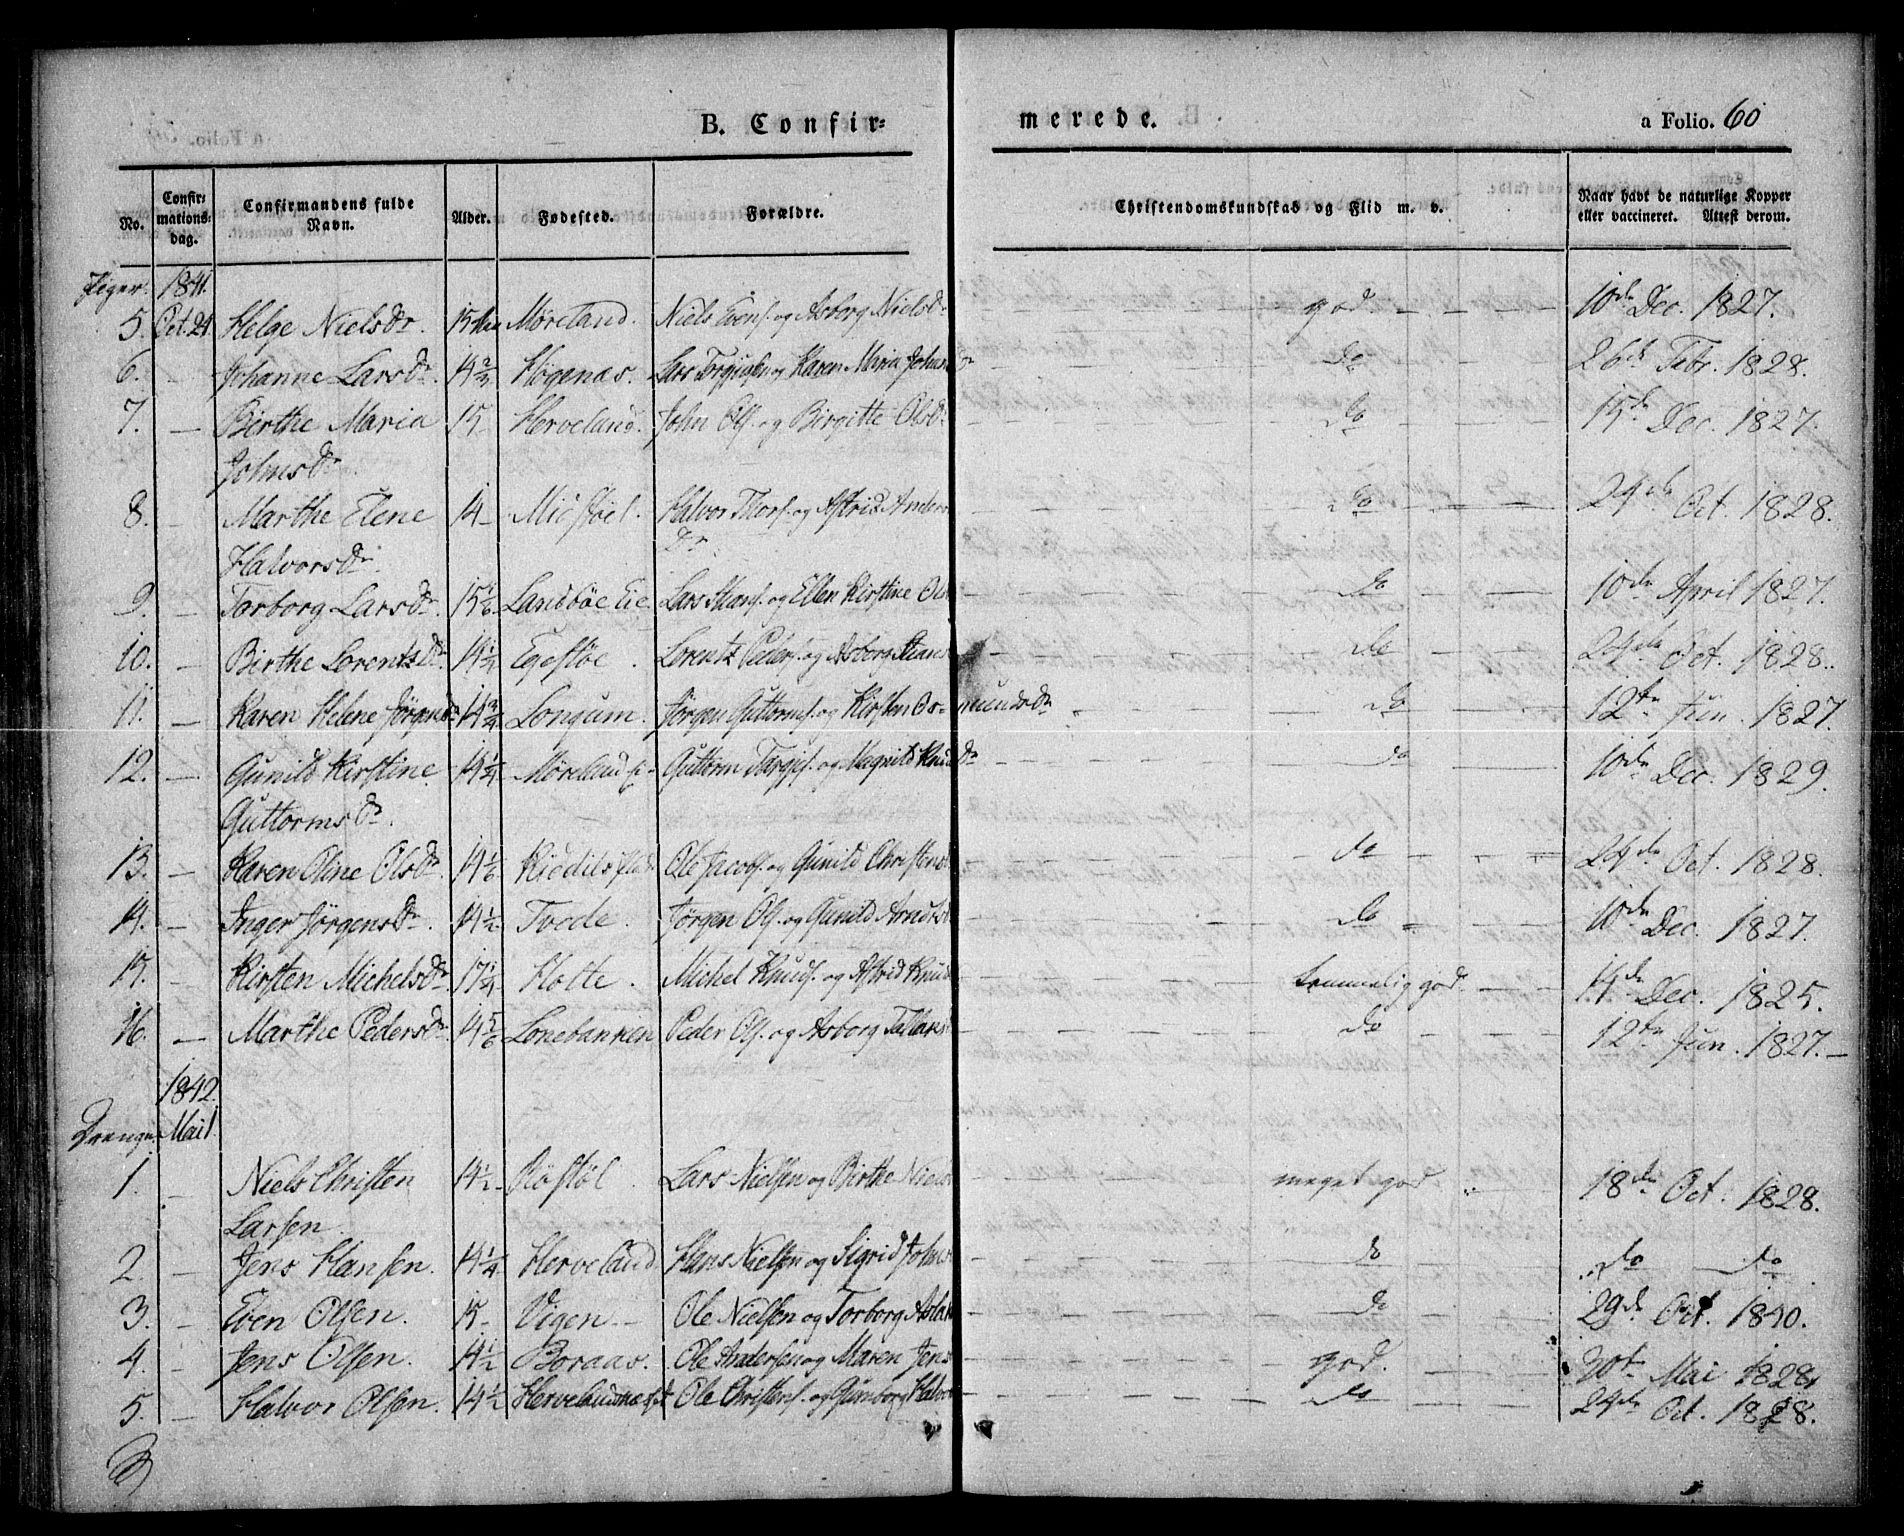 B. Confir= merede. a Folio. 60
No. Confir=mations=dag. Confirmandens fulde Navn. Alder. Fødested. Forældre. Christendomskundskab og Flid m. v. Naar havt de naturlige Kopper eller vaccineret. Attest derom.
Piger. 1841.
5. Oct. 24 Helge NielsDr. 15 Møreland. Niels Evens. og Asborg NielsDr god. 10de Dec. 1827.
6. — Johanne LarsDr. 14 2/3 Høgenæs. Lars Torgjusen og Karen Maria Do 26de Febr. 1828.
7. — Birthe Maria 15 Herveland. John Ols. og Birgitte OlsDr Do 15de Dec. 1827.
JohnsDr
8. — Marthe Elene 14 — Midstøel. Halvor Thors. og Astrid Anders Do 24de Oct. 1828.
HalvorsDr. Dr.
9. — Torborg LarsDr. 15 1/6 Landbøe Eie. Lars Stians. og Ellen Kirstine Ols Do 10de April 1827.
10. — Birthe LorentzDr. 14 1/4 Egestøe. Lorentz Peders. og Asborg Stians Do 24de Oct. 1828.
11. — Karen Helene JørgensDr 14 3/4 Longum. Jørgen Guttorms. og Kirsten Os=mundsDr Do 12te Jun. 1827.
12. — Gunild Kirstine 14 1/4 Møreland Guttorm Torgjs. og Magnild KnudsDr do 10de Dec. 1829.
GuttormsDr.
13. — Karen Oline OlsDr. 14 1/6 Ole Jacobs. og Gunild Christens do 24de Oct. 1828.
14. — Inger JørgensDr. 14 1/2 Tvede. Jørgen Ols. og Gunild Arnts do 10de Dec. 1827.
15. — Kirsten MichelsDr. 17 1/4 Holte. Michel Knuds. og Astrid Knuds temmelig god. 14de Dec. 1825.
16. — Marthe PedersDr. 14 5/6 Lonebakken Peder Ols. og Asborg Tallaks do 12te Jun. 1827.—
1842.
Drenge. Mai 1.
1. — Niels Christen 14 1/2 Røstøl. Lars Nielsen og Birthe Niels meget god. 18de Oct. 1828.
Larsen
2. — Jens Hansen. 14 1/4 Herveland Hans Nielsen og Sigrid Johns do do do
3. — Even Olsen. 15 — Vigen — Ole Nielsen og Torborg Aslak do 29de Oct. 1840.
4. — Jens Olsen. 14 1/2 Boraas. Ole Andersen og Maren Jens god. 20de Mai 1828.
5. — Halvor Olsen. 14 1/2 Ole Christens. og Gunborg Halvor do 24de Oct. 1828.